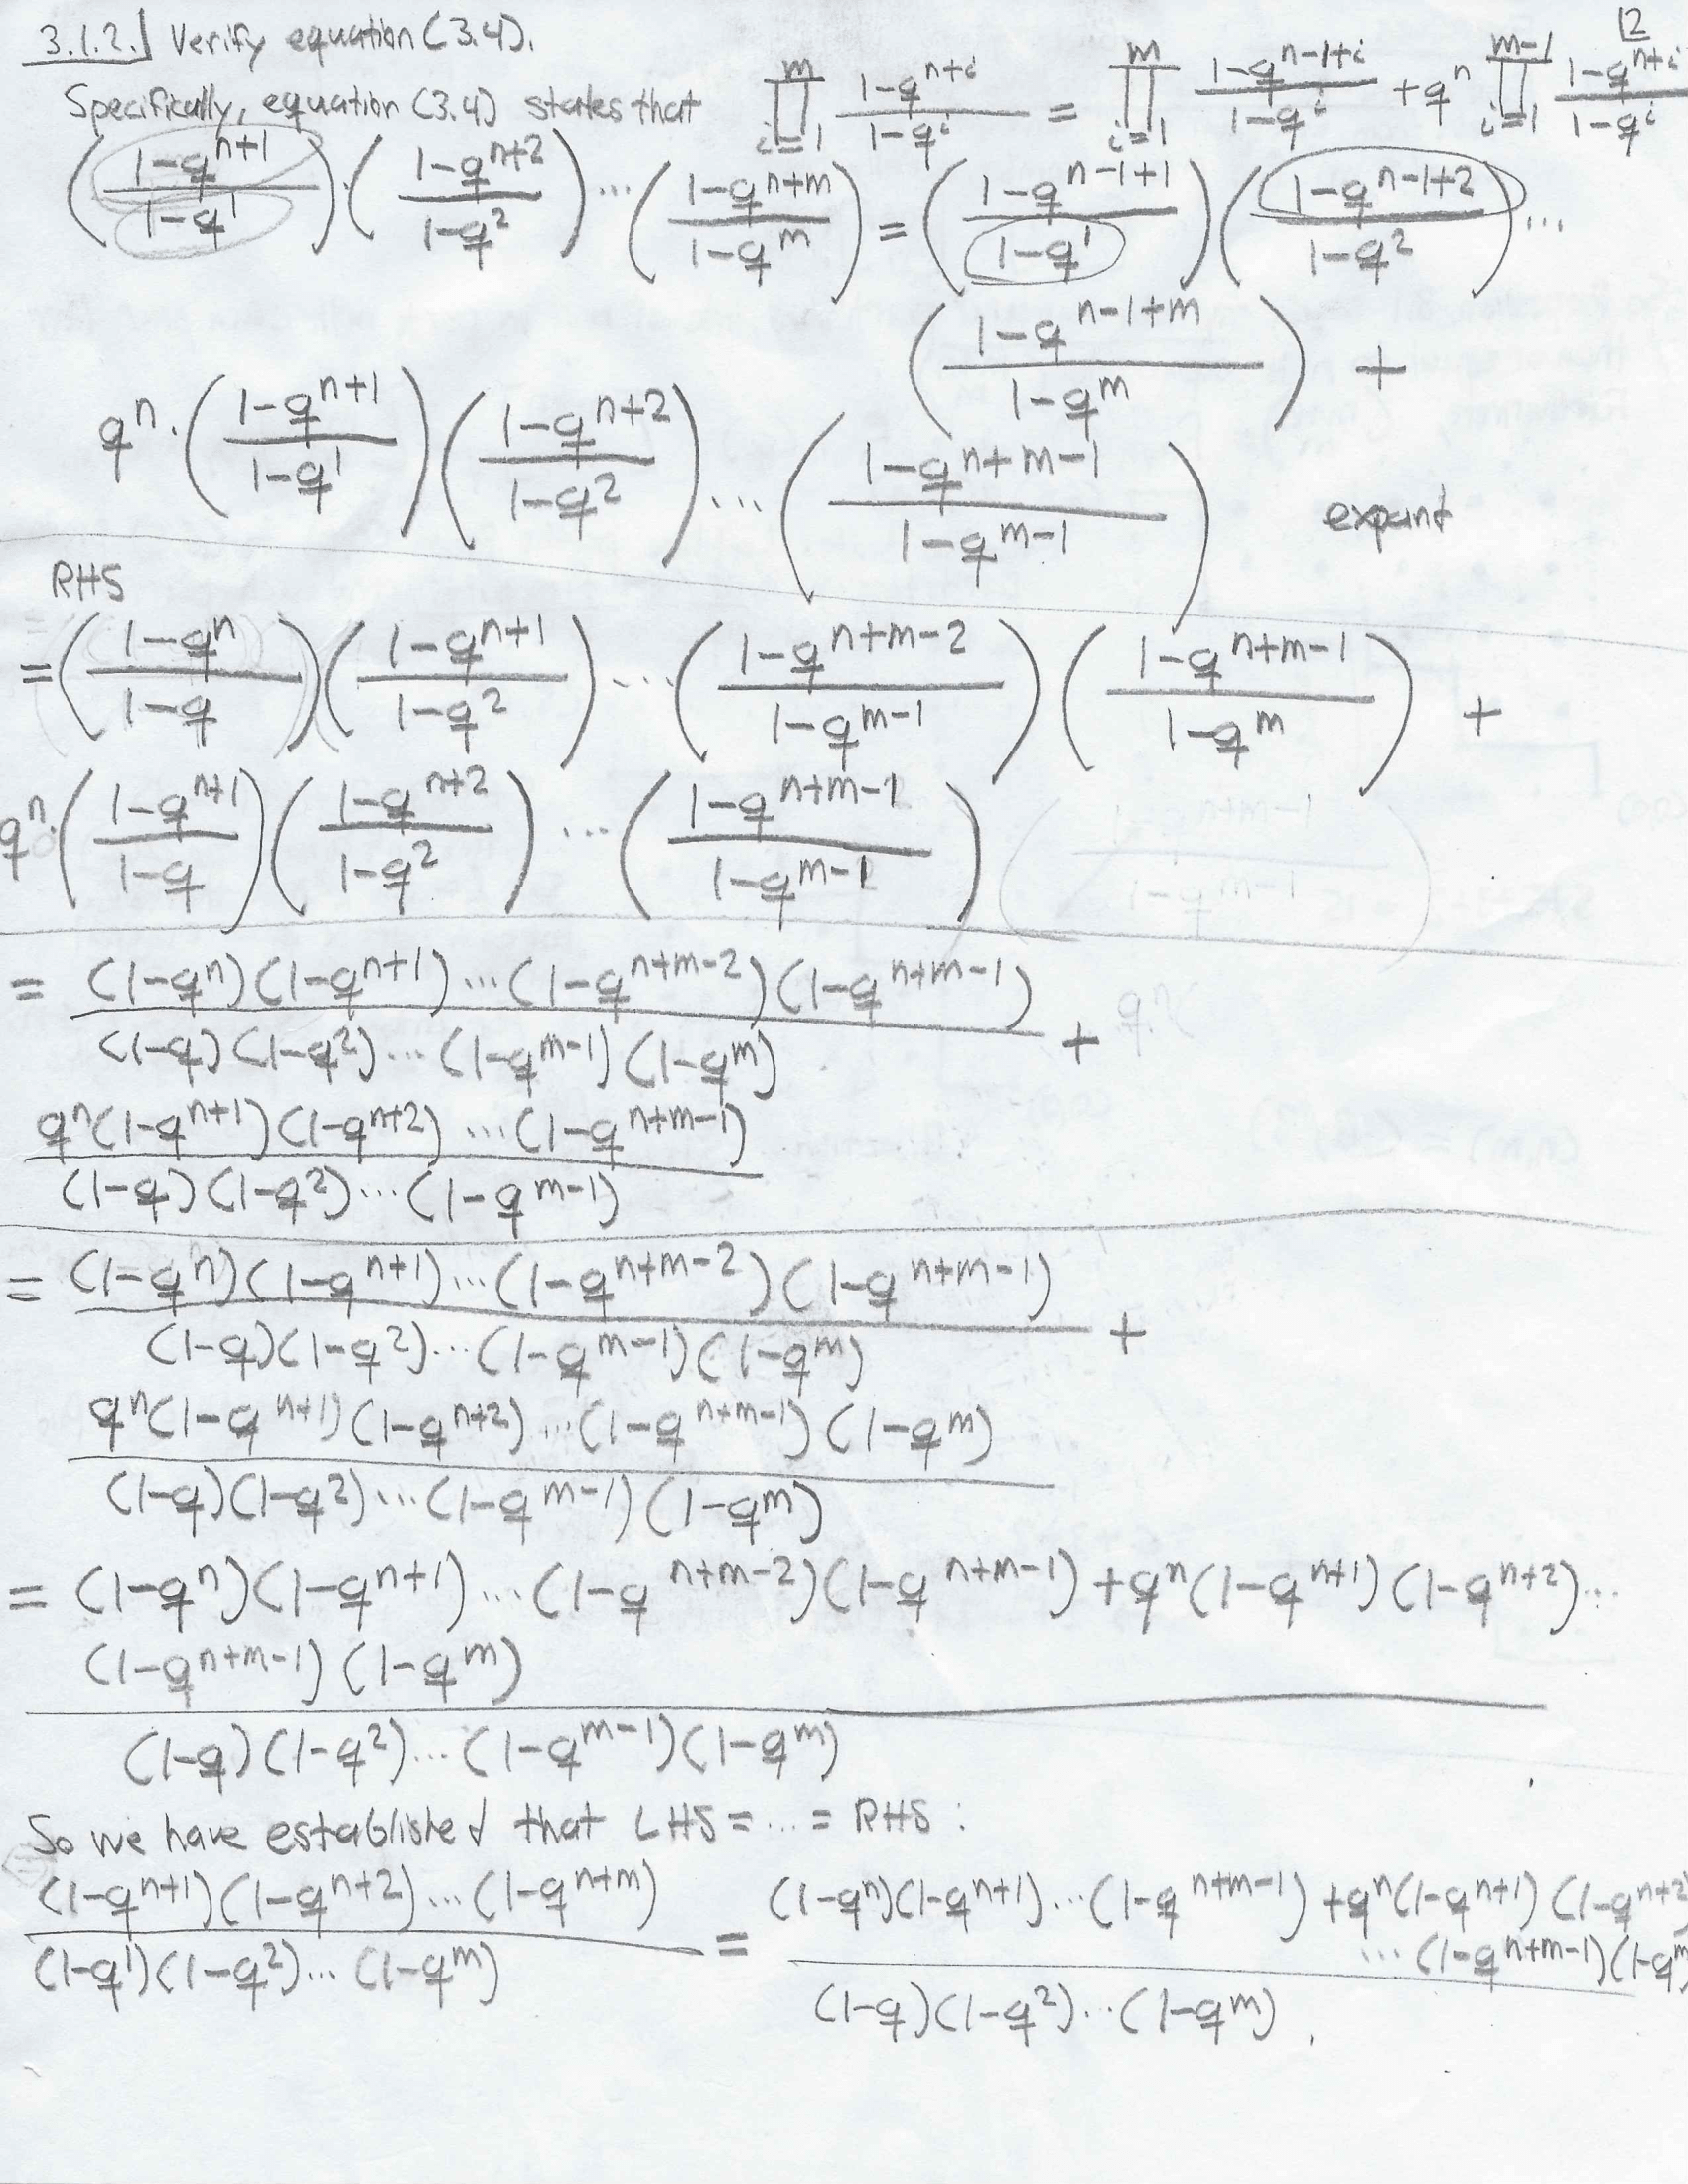 3.1.2. Verify equation (3.4). 12
Specifically, equation (3.4) states that ∏_{i=1}^{m} (1-q^{n+i})/(1-q^i) = ∏_{i=1}^{m} (1-q^{n-1+i})/(1-q^i) + q^n ∏_{i=1}^{m-1} (1-q^{n+i})/(1-q^i)
((1-q^{n+1})/(1-q^1)) · ((1-q^{n+2})/(1-q^2)) ... ((1-q^{n+m})/(1-q^m)) = ((1-q^{n-1+1})/(1-q^1)) ((1-q^{n-1+2})/(1-q^2)) ...
((1-q^{n-1+m})/(1-q^m)) +
q^n · ((1-q^{n+1})/(1-q^1)) ((1-q^{n+2})/(1-q^2)) ... ((1-q^{n+m-1})/(1-q^{m-1})) expand
RHS
= ((1-q^n)/(1-q)) ((1-q^{n+1})/(1-q^2)) ... ((1-q^{n+m-2})/(1-q^{m-1})) ((1-q^{n+m-1})/(1-q^m)) +
q^n · ((1-q^{n+1})/(1-q)) ((1-q^{n+2})/(1-q^2)) ... ((1-q^{n+m-1})/(1-q^{m-1}))
= (1-q^n)(1-q^{n+1}) ... (1-q^{n+m-2})(1-q^{n+m-1})
(1-q)(1-q^2) ... (1-q^{m-1})(1-q^m) +
q^n(1-q^{n+1})(1-q^{n+2}) ... (1-q^{n+m-1})
(1-q)(1-q^2) ... (1-q^{m-1})
= (1-q^n)(1-q^{n+1}) ... (1-q^{n+m-2})(1-q^{n+m-1})
(1-q)(1-q^2) ... (1-q^{m-1})(1-q^m) +
q^n(1-q^{n+1})(1-q^{n+2}) ... (1-q^{n+m-1})(1-q^m)
(1-q)(1-q^2) ... (1-q^{m-1})(1-q^m)
= (1-q^n)(1-q^{n+1}) ... (1-q^{n+m-2})(1-q^{n+m-1}) + q^n(1-q^{n+1})(1-q^{n+2}) ...
(1-q^{n+m-1})(1-q^m)
(1-q)(1-q^2) ... (1-q^{m-1})(1-q^m)
So we have established that LHS = ... = RHS:
(1-q^{n+1})(1-q^{n+2}) ... (1-q^{n+m}) = (1-q^n)(1-q^{n+1}) ... (1-q^{n+m-1}) + q^n(1-q^{n+1})(1-q^{n+2})
... (1-q^{n+m-1})(1-q^m)
(1-q^1)(1-q^2) ... (1-q^m) (1-q)(1-q^2) ... (1-q^m).